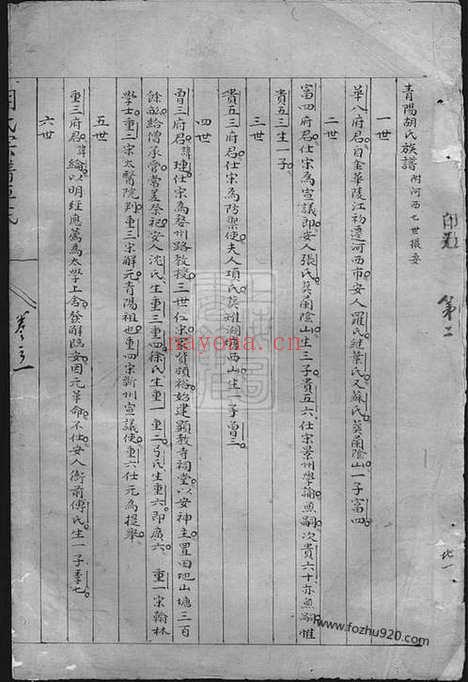 青陽胡氏族譜 附河西七世撮要
一世
華八府君自金華陵江初遷河西市安人羅氏继葉氏又蘇氏葬蘭陰山一子富四
二世
富四府君仕宋為宣議郎安人張氏葬蘭陰山生三子貴五六仕宋景州學諭無嗣次貴六十亦無嗣惟
貴五三生一子
三世
貴五三府君仕宋為防禦使夫人項氏葬雄湖嶺西山生一子曾三
四世
曾三府君諱璉仕宋為婺州路教授三世仁宋家貲頗裕始建顯教寺祠堂以安神主置田地山塘三百
餘畝給僧承管嘗差祭祀安人沈氏生重三重四徐氏生重一重二弓氏生重六即廣六 重一宋翰林
學士重二宋太醫院判重三宋解元青陽祖也重四宋蘄州宣議使重六仕元為提舉
五世
重三府君諱綸以明经應薦為太學上舍發解臨安因元革命不仕安人衛前傅氏生一子季七
六世
第二
卷之一
北一
nayona.cn
www.fozhu920.com